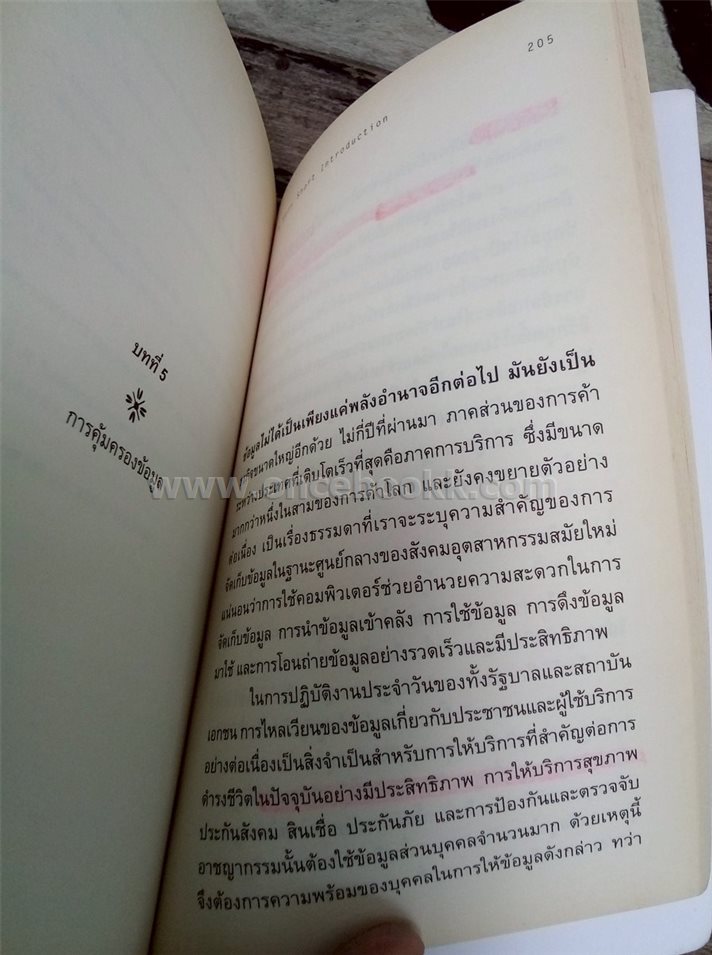 บทที่ 5
การคุ้มครองข้อมูล
205
Short Introduction
ข้อมูลไม่ได้เป็นเพียงแค่พลังอำนาจอีกต่อไป มันยังเป็น
ขนาดใหญ่อีกด้วย ไม่กี่ปีที่ผ่านมา ภาคส่วนของการค้า
ระหว่างประเทศที่เติบโตเร็วที่สุดคือภาคการบริการ ซึ่งมีขนาด
มากกว่าหนึ่งในสามของการค้าโลก และยังคงขยายตัวอย่าง
ต่อเนื่อง เป็นเรื่องธรรมดาที่เราจะระบุความสำคัญของการ
จัดเก็บข้อมูลในฐานะศูนย์กลางของสังคมอุตสาหกรรมสมัยใหม่
แน่นอนว่าการใช้คอมพิวเตอร์ช่วยอำนวยความสะดวกในการ
จัดเก็บข้อมูล การนำข้อมูลเข้าคลัง การใช้ข้อมูล การดึงข้อมูล
มาใช้ และการโอนถ่ายข้อมูลอย่างรวดเร็วและมีประสิทธิภาพ
ในการปฏิบัติงานประจำวันของทั้งรัฐบาลและสถาบัน
เอกชน การไหลเวียนของข้อมูลเกี่ยวกับประชาชนและผู้ใช้บริการ
อย่างต่อเนื่องเป็นสิ่งจำเป็นสำหรับการให้บริการที่สำคัญต่อการ
ดำรงชีวิตในปัจจุบันอย่างมีประสิทธิภาพ การให้บริการสุขภาพ
ประกันสังคม สินเชื่อ ประกันภัย และการป้องกันและตรวจจับ
อาชญากรรมนั้นต้องใช้ข้อมูลส่วนบุคคลจำนวนมาก ด้วยเหตุนี้
จึงต้องการความพร้อมของบุคคลในการให้ข้อมูลดังกล่าว ทว่า
www.oncebookk.com